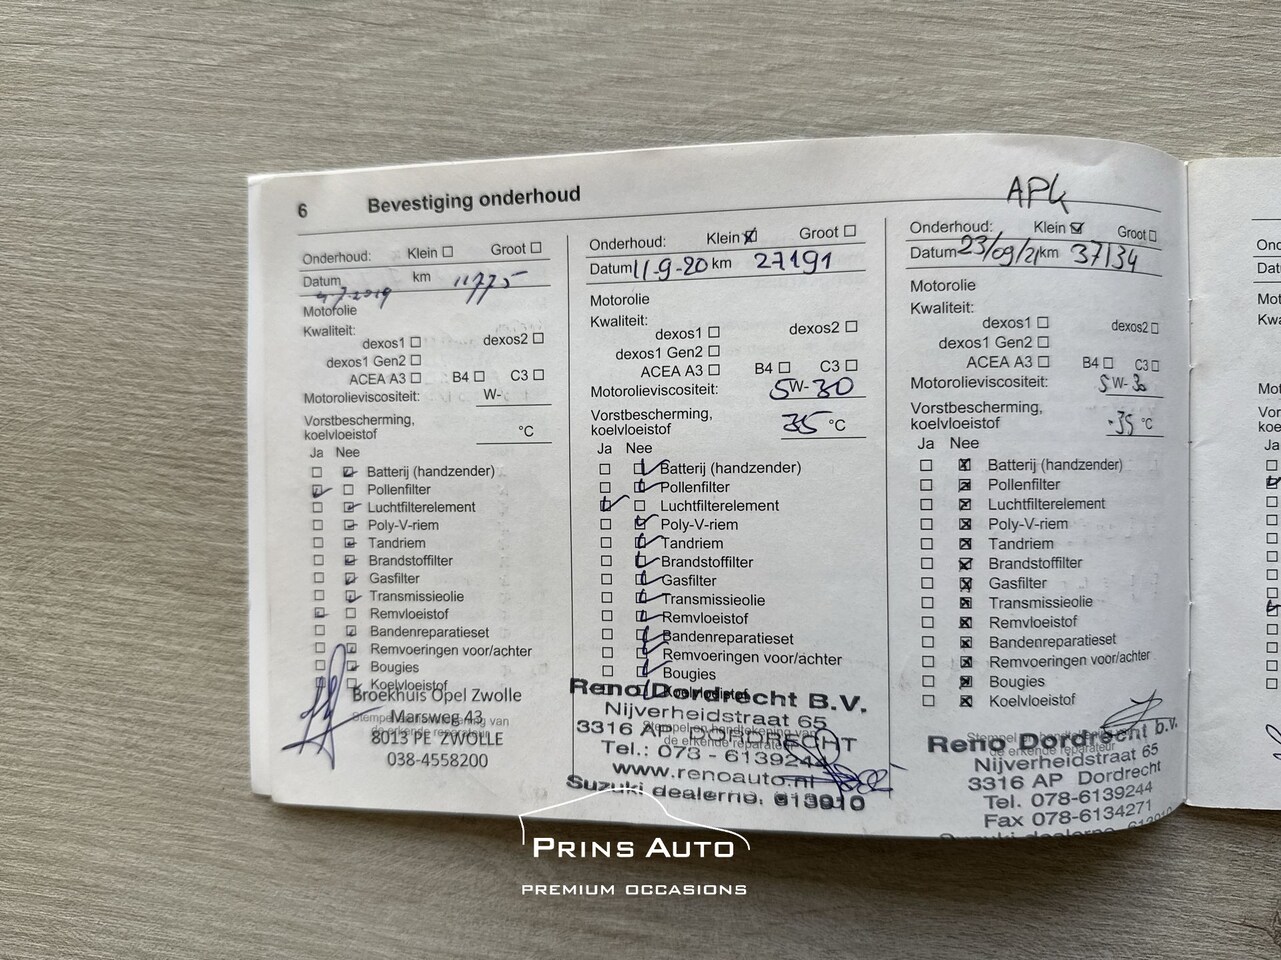 6 Bevestiging onderhoud
APK
Onderhoud: Klein Groot
Datum 4-7-2019 km 11775
Motorolie
Kwaliteit:
dexos1 dexos2
dexos1 Gen2
ACEA A3 B4 C3
Motorolieviscositeit: W-
Vorstbescherming,
koelvloeistof °C
Ja Nee
Batterij (handzender)
Pollenfilter
Luchtfilterelement
Poly-V-riem
Tandriem
Brandstoffilter
Gasfilter
Transmissieolie
Remvloeistof
Bandenreparatieset
Remvoeringen voor/achter
Bougies
Koelvloeistof
Broekhuis Opel Zwolle
Marsweg 43
8013 PE ZWOLLE
038-4558200
Onderhoud: Klein Groot
Datum 11-9-20 km 27191
Motorolie
Kwaliteit:
dexos1 dexos2
dexos1 Gen2
ACEA A3 B4 C3
Motorolieviscositeit: 5W-30
Vorstbescherming,
koelvloeistof 35 °C
Ja Nee
Batterij (handzender)
Pollenfilter
Luchtfilterelement
Poly-V-riem
Tandriem
Brandstoffilter
Gasfilter
Transmissieolie
Remvloeistof
Bandenreparatieset
Remvoeringen voor/achter
Bougies
Koelvloeistof
Reno Dordrecht B.V.
Nijverheidstraat 65
3316 AP DORDRECHT
Tel.: 078 - 6139244
www.renoauto.nl
Suzuki dealerno. 613910
Onderhoud: Klein Groot
Datum 23/09/21 km 37134
Motorolie
Kwaliteit:
dexos1 dexos2
dexos1 Gen2
ACEA A3 B4 C3
Motorolieviscositeit: 5W-30
Vorstbescherming,
koelvloeistof -35 °C
Ja Nee
Batterij (handzender)
Pollenfilter
Luchtfilterelement
Poly-V-riem
Tandriem
Brandstoffilter
Gasfilter
Transmissieolie
Remvloeistof
Bandenreparatieset
Remvoeringen voor/achter
Bougies
Koelvloeistof
Stempel
de erkende reparateur
Reno Dordrecht b.v.
Nijverheidstraat 65
3316 AP Dordrecht
Tel. 078-6139244
Fax 078-6134271
Suzuki dealerno.
PRINS AUTO
PREMIUM OCCASIONS